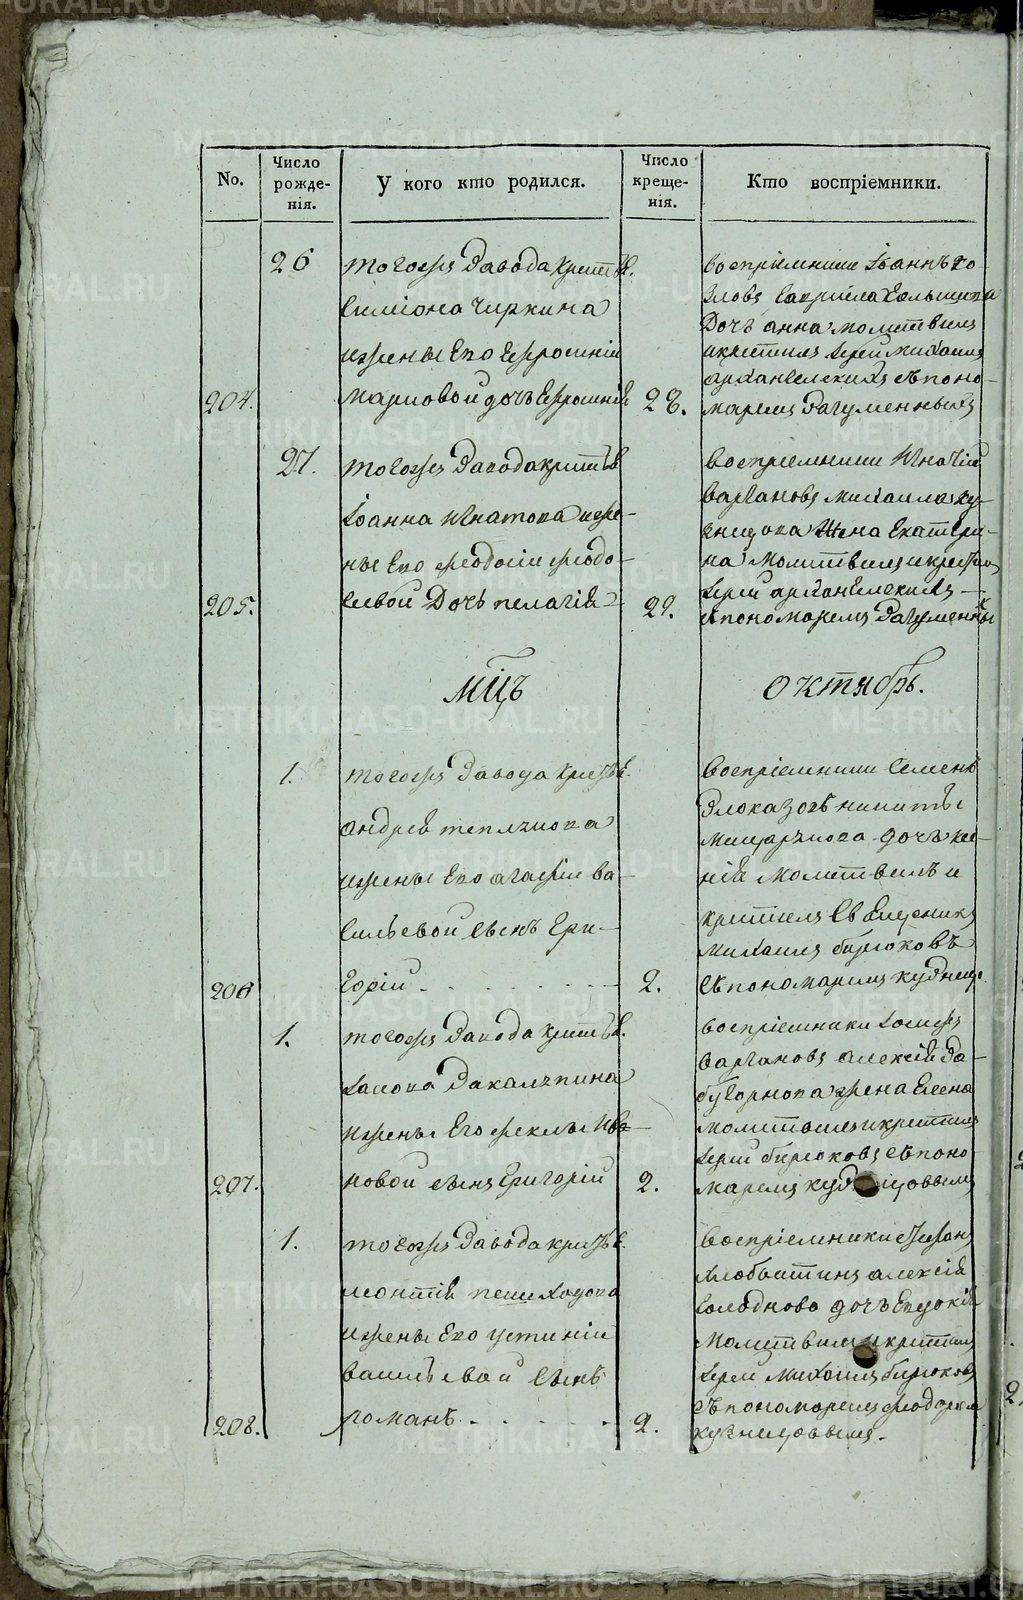 No.
Число рожде- нія.
У кого кто родился.
Число креще- нія.
Кто воспріемники.
26
тогожъ завода крест.
Симіона Чиркина
ижены Его Ефросиніи
204. Марковой дочь Ефросинія 28.
воспріемники Іоаннъ Ко-
зловъ Гавріила
Дочь анна молитвилъ
икрестилъ Іерей Михаилъ
архангелскихъ съ поно-
маремъ Загуменныхъ
27. тогожъ Завода крест.
Іоанна Игнатова ижe-
ны Его Феодосіи Феодо-
205. Сѣвой Дочь пелагія 29.
воспріемники Игнатій
Варгановъ Михаила Ку-
знецова Жена Екатери-
на Молитвилъ икрестилъ
Іерей архангелскихъ
съпономаремъ Загуменны
мцъ октябрь.
1. тогожъ Завода крест.
андрея
ижены Его агафіи ва-
сильевой сынъ Гри-
206 горій 2.
воспріемники Семенъ
Злоказовъ никиты
дочь ксе-
нія Молитвилъ и
крестилъ Священникъ
Михаилъ бирюковъ
съпономаремъ кузнецо
1. тогожъ Завода крест.
Іакова Закалупина
ижены Его Феклы Ива-
207. новой сынъ Григорій 2.
воспріемники Іосифъ
Варгановъ алексѣй За-
жена Елена
молитвилъ икрестилъ
Іерей бирюковъ съ поно-
маремъ
1. тогожъ Завода крест.
леонтія пешеходова
ижены Его устиніи
васильевой сынъ
208. романъ 2.
Воспріемники Стефанъ
алексѣя
дочь Евдокія
Молитвилъ икрестилъ
Іерей Михаилъ бирюковъ
съпономаремъ Феодором
кузнецовымъ.
METRIKI.GASO-URAL.RU